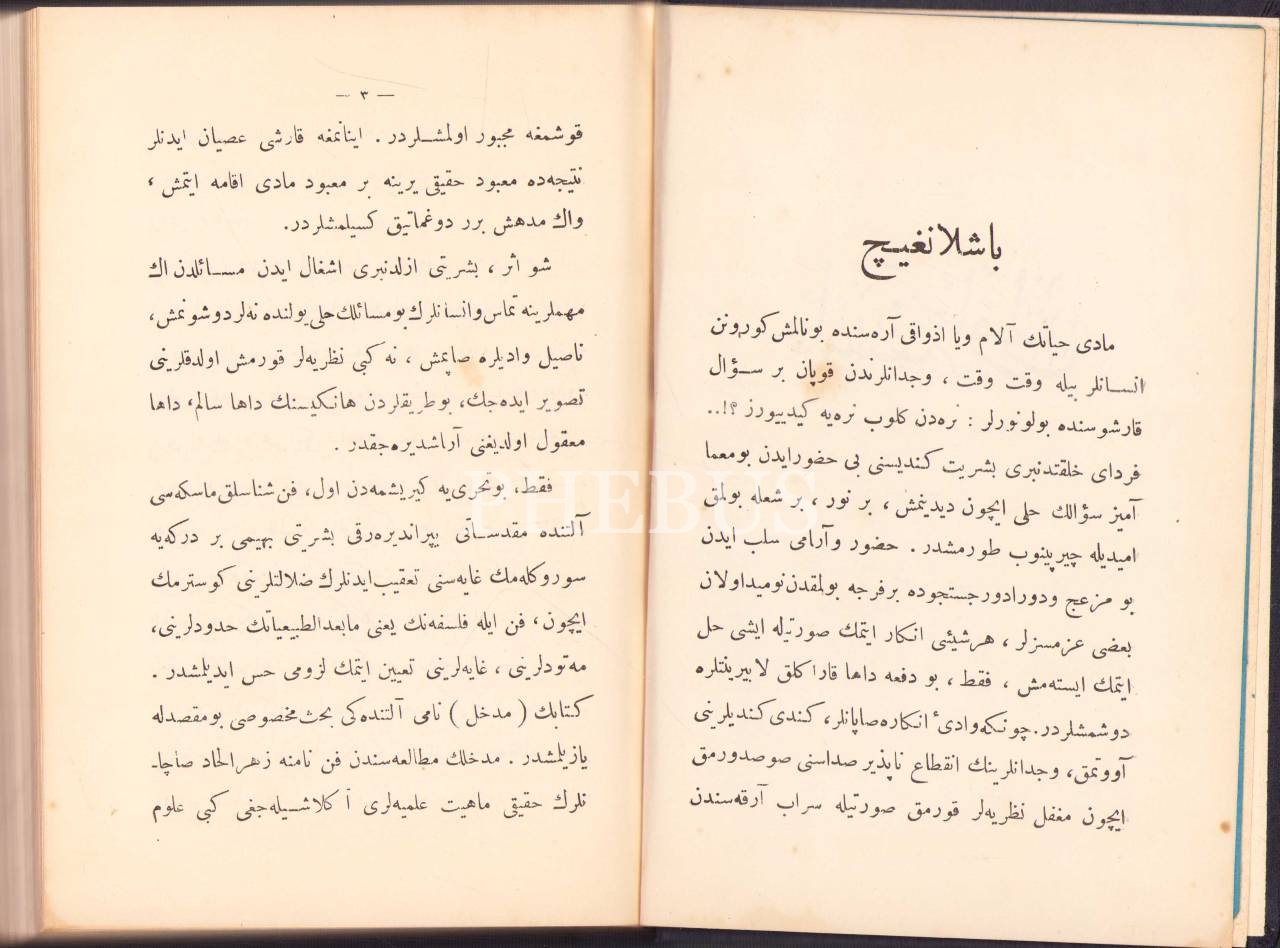 باشلانغیج
مادی حیاتك آلام ویا اذواقی آره‌سنده بوكالمش كورونن
انسانلر بیله وقت وقت ، وجدانلرندن قوپان بر سؤال
قارشوسنده بولونورلر : نره‌دن كلوب نره‌یه كیدییورز ؟!..
فردای خلقتدنبری بشریت كندیسنی بی حضور ایدن بومعما
آمیز سؤالك حلی ایچون دیدینمش ، بر نور ، بر شعله بولمق
امیدیله چیرپینوب طورمشدر . حضور وآرامی سلب ایدن
بو مزعج ودورادور جستجوده برفرجه بولمقدن نومید اولان
بعضی عزمسزلر ، هرشیئی انكار ایتمك صورتیله ایشی حل
ایتمك ایسته‌مش ، فقط ، بو دفعه داها قاراكلق لابیرینتلره
دوشمشلردر. چونكه وادیٔ انكاره صاپانلر، كندی كندیلرینی
آووتمق، وجدانلرینك انقطاع ناپذیر صداسنی صوصدورمق
ایچون مغفل نظریه‌لر قورمق صورتیله سراب آرقه‌سندن
— ٣ —
قوشمغه مجبور اولمشلردر . اینانمغه قارشی عصیان ایدنلر
نتیجه‌ده معبود حقیقی یرینه بر معبود مادی اقامه ایتمش ،
واك مدهش برر دوغماتیق كسیلمشلردر.
شو اثر ، بشریتی ازلدنبری اشغال ایدن مسائلدن اك
مهملرینه تماس وانسانلرك بومسائلك حلی یولنده نه‌لر دوشونمش،
ناصیل وادیلره صاپمش ، نه كبی نظریه‌لر قورمش اولدقلرینی
تصویر ایده‌جك، بوطریقلردن هانكیسنك داها سالم، داها
معقول اولدیغنی آراشدیره‌جقدر .
فقط، بوتحری‌یه كیریشمه‌دن اول، فن شناسلق ماسكه‌سی
آلتنده مقدساتی ییپراندیره‌رق بشریتی بهیمی بر دركه‌یه
سوروكله‌مك غایه‌سنی تعقیب ایدنلرك ضلالتلرینی كوسترمك
ایچون، فن ایله فلسفه‌نك یعنی مابعدالطبیعیاتك حدودلرینی،
مه‌تودلرینی ، غایه‌لرینی تعیین ایتمك لزومی حس ایدیلمشدر .
كتابك ( مدخل ) نامی آلتنده‌كی بحث مخصوصی بومقصدله
یازیلمشدر . مدخلك مطالعه‌سندن فن نامنه زهر الحاد صاچا-
نلرك حقیقی ماهیت علمیه‌لری آكلاشیله‌جغی كبی علوم
PHEBUS